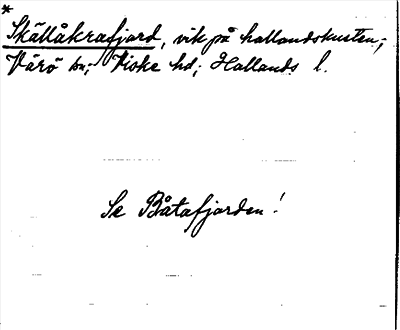 *
Skällåkrafjord, vik på hallandskusten;
Värö sn; Viske hd; Hallands l.
Se Båtafjorden!